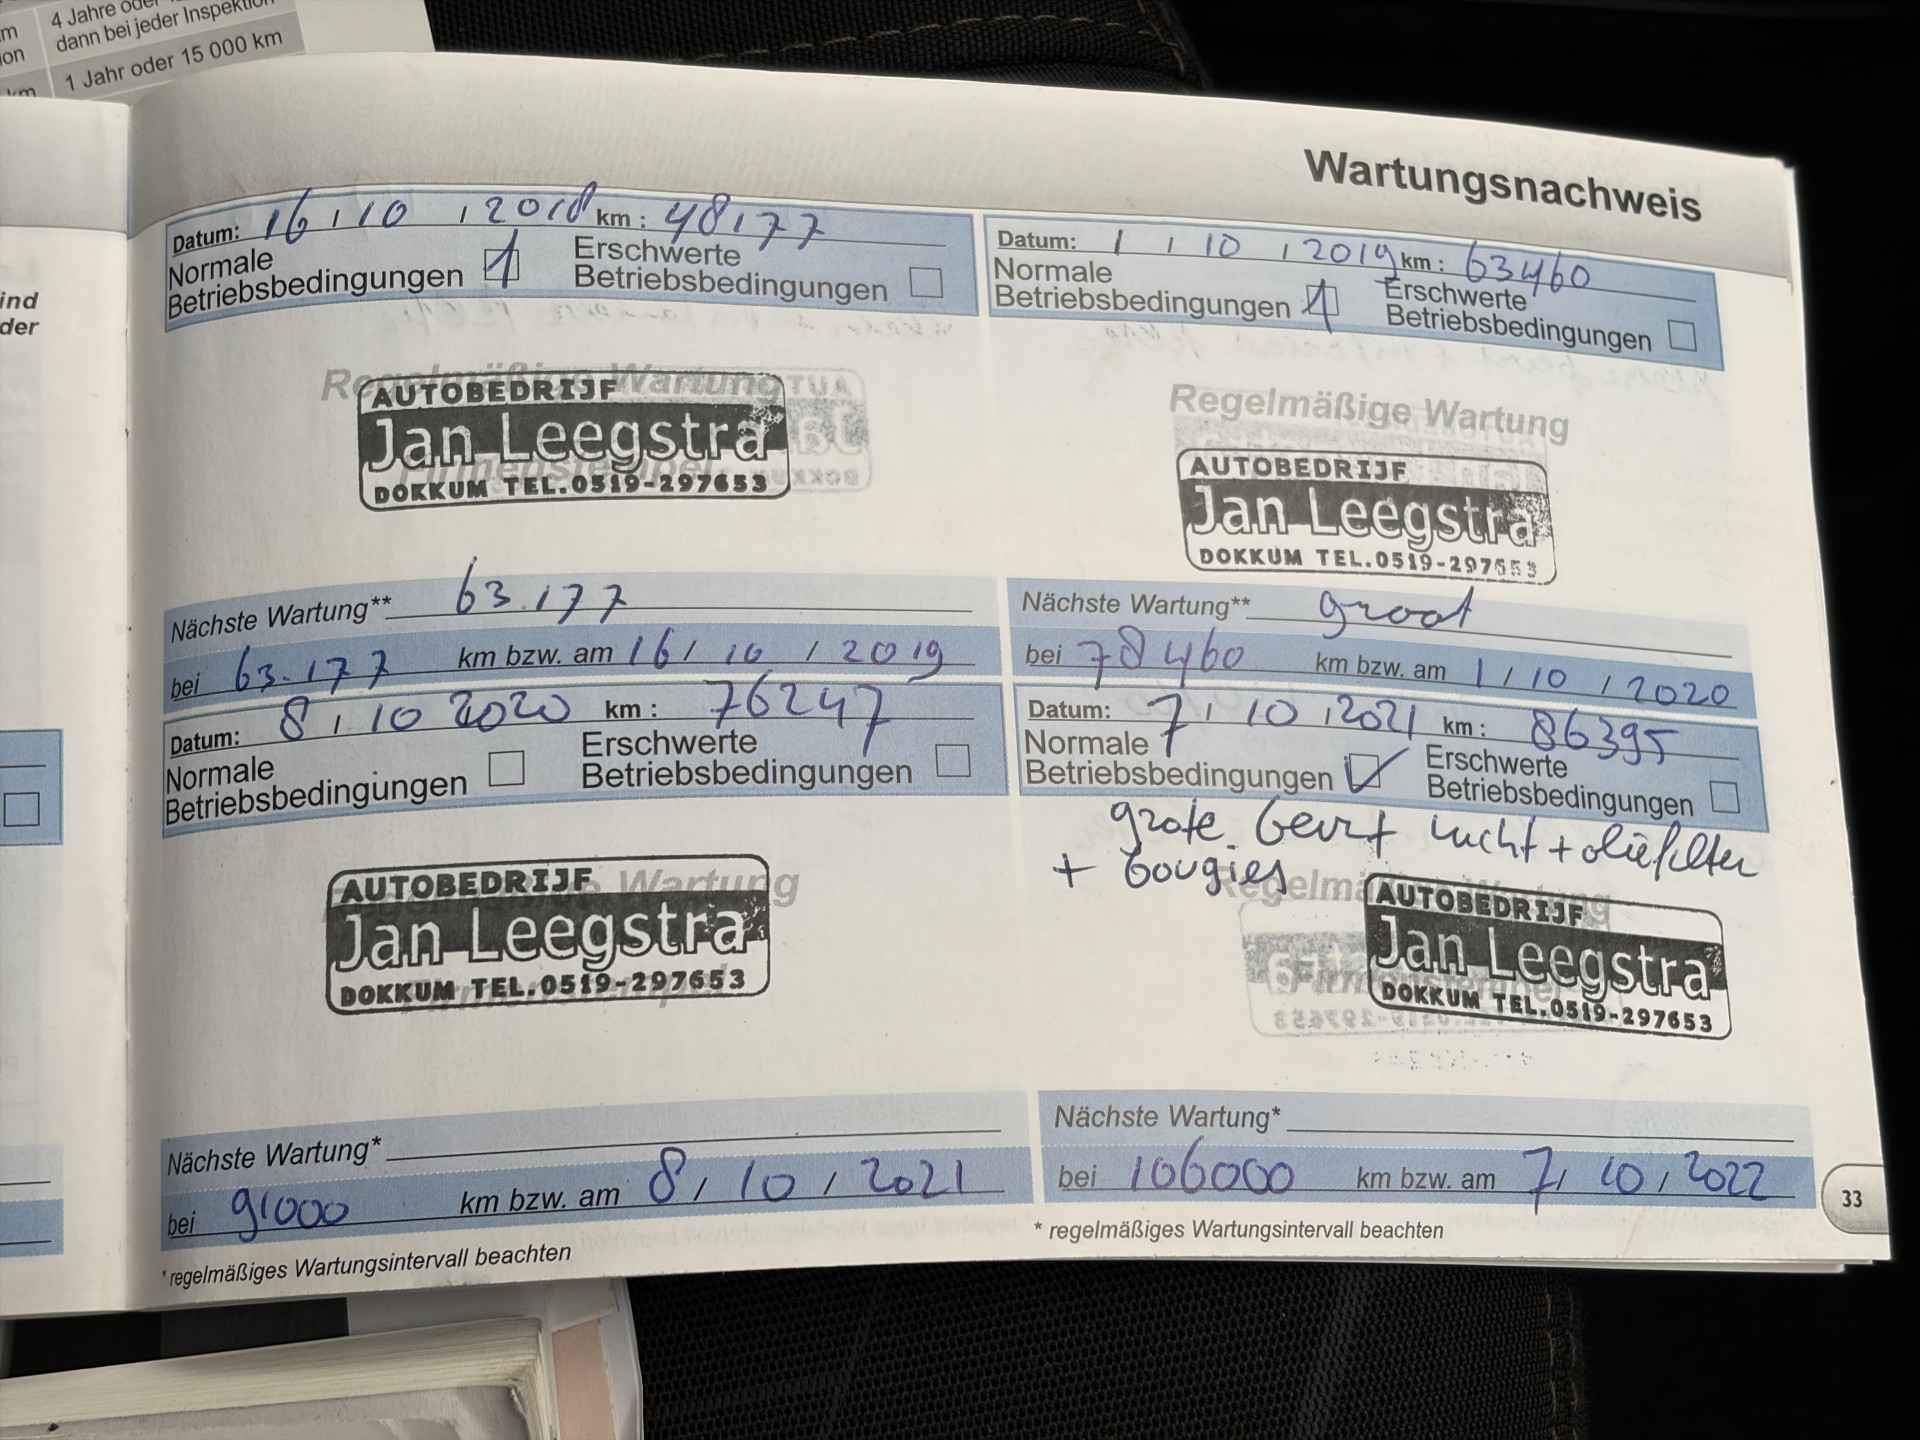 4 Jahre oder
dann bei jeder Inspektion
1 Jahr oder 15 000 km
km
ion
km
ind
der
Wartungsnachweis
Datum: 16 / 10 / 2018 km : 48177
Normale
Betriebsbedingungen
Erschwerte
Betriebsbedingungen
Regelmäßige Wartung
Firmenstempel
AUTOBEDRIJF
Jan Leegstra
DOKKUM TEL.0519-297653
Nächste Wartung** 63.177
bei 63.177 km bzw. am 16 / 10 / 2019
Datum: 1 / 10 / 2019 km : 63460
Normale
Betriebsbedingungen
Erschwerte
Betriebsbedingungen
Regelmäßige Wartung
AUTOBEDRIJF
Jan Leegstra
DOKKUM TEL.0519-297653
Nächste Wartung** groot
bei 78460 km bzw. am 1 / 10 / 2020
Datum: 8 / 10 2020 km : 76247
Normale
Betriebsbedingungen
Erschwerte
Betriebsbedingungen
Regelmäßige Wartung
Firmenstempel
AUTOBEDRIJF
Jan Leegstra
DOKKUM TEL.0519-297653
Nächste Wartung*
bei 91000 km bzw. am 8 / 10 / 2021
* regelmäßiges Wartungsintervall beachten
Datum: 7 / 10 / 2021 km : 86395
Normale
Betriebsbedingungen
Erschwerte
Betriebsbedingungen
grote beurt lucht + oliefilter
+ bougies
Regelmäßige Wartung
Firmenstempel
AUTOBEDRIJF
Jan Leegstra
DOKKUM TEL.0519-297653
Nächste Wartung*
bei 106000 km bzw. am 7 / 10 / 2022
* regelmäßiges Wartungsintervall beachten
33